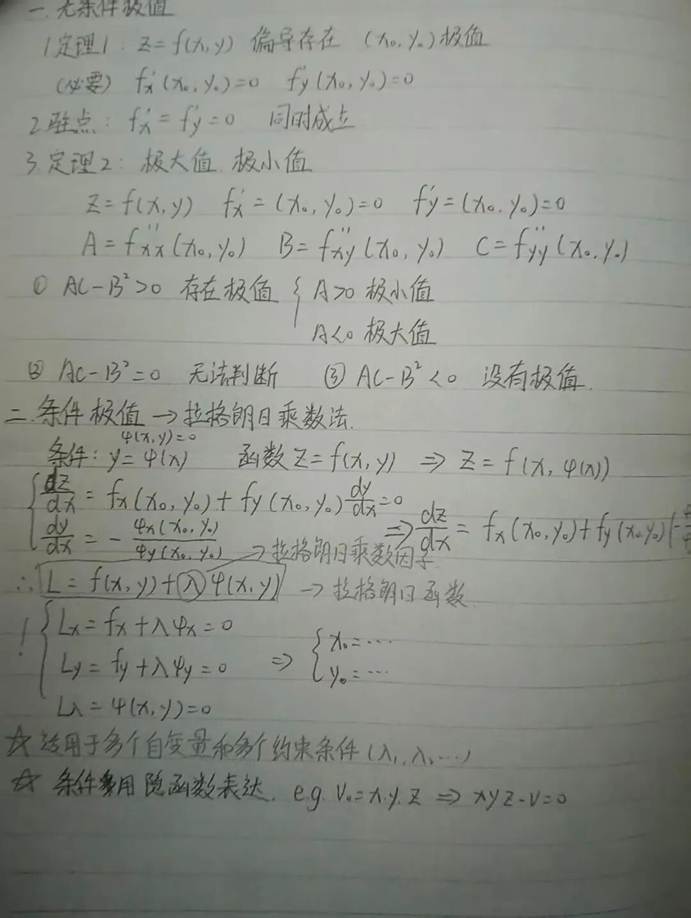 一.无条件极值
1定理1: Z=f(x,y) 偏导存在 (x₀,y₀)极值
(必要) f'x(x₀,y₀)=0 f'y(x₀,y₀)=0
2.驻点: f'x=f'y=0 同时成立
3.定理2: 极大值.极小值
Z=f(x,y) f'x=(x₀,y₀)=0 f'y=(x₀,y₀)=0
A=f''xx(x₀,y₀) B=f''xy(x₀,y₀) C=f''yy(x₀,y₀)
① AC-B²>0 存在极值 { A>0 极小值
A<0 极大值
② AC-B²=0 无法判断 ③ AC-B²<0 没有极值.
二.条件极值→拉格朗日乘数法.
φ(x,y)=0
条件: y=φ(x) 函数Z=f(x,y) ⇒ Z=f(x,φ(x))
{ dz/dx=fx(x₀,y₀)+fy(x₀,y₀)dy/dx=0
dy/dx=-φx(x₀,y₀)/φy(x₀,y₀) ⇒ dz/dx=fx(x₀,y₀)+fy(x₀,y₀)(-
→拉格朗日乘数因子
∴ L=f(x,y)+λφ(x,y) →拉格朗日函数.
! { Lx=fx+λφx=0
Ly=fy+λφy=0 ⇒ { x₀=…
y₀=…
Lλ=φ(x,y)=0
☆适用于多个自变量和多个约束条件(λ₁,λ,…)
☆ 条件用隐函数表达. e.g. V₀=x.y.z ⇒ xyz-V=0